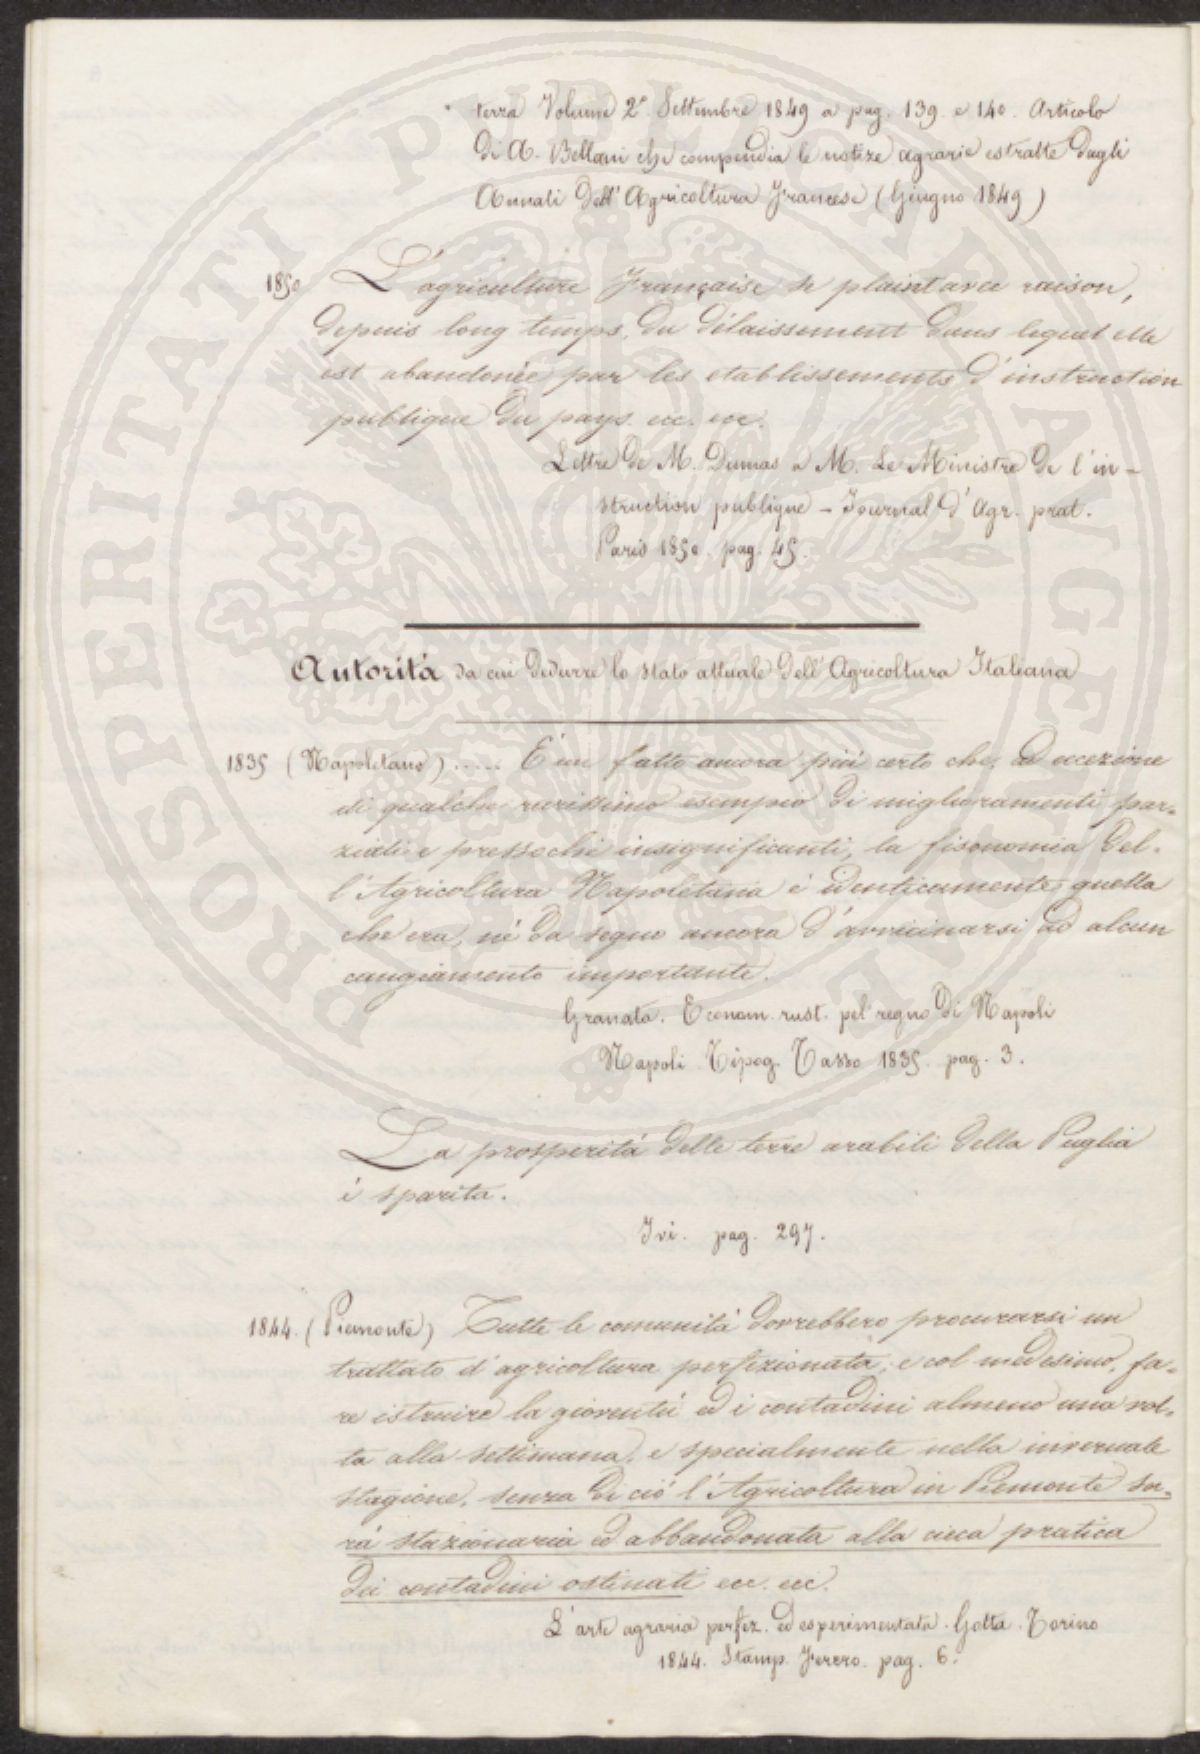 terza Volume 2º Settembre 1849 a pag. 139 e 140. Articolo
di A. Bellani che compendia le notize agrarie estratte dagli
Annali dell' Agricoltura Francese (Giugno 1849)
1850 L'agriculture Française se plaint avec raison,
depuis long temps, du délaissement dans lequel elle
est abandonée par les etablissements d'instruction
publique du pays ecc. ecc.
Lettre de M. Dumas a M. Le Ministre de l'in-
struction publique - Journal d'Agr. prat.
Paris 1850. pag. 45.
Autorità da cui dedurre lo stato attuale dell' Agricoltura Italiana
1835 (Napoletano) ..... È un fatto ancora più certo che, ad eccezione
di qualche rarissimo esempio di miglioramenti par-
ziali e pressochè insignificanti, la fisonomia del-
l'Agricoltura Napoletana è identicamente quella
che era, nè da segno ancora d'avvicinarsi ad alcun
cangiamento importante.
Granata. Econom. rust. pel regno di Napoli
Napoli Tipog. Tasso 1835. pag. 3.
La prosperità delle terre arabili della Puglia
è sparita.
Ivi. pag. 297.
1844. (Piemonte) Tutte le comunità dovrebbero procurarsi un
trattato d'agricoltura perfezionata, e col medesimo, fa-
re istruire la gioventù ed i contadini almeno una vol-
ta alla settimana, e specialmente nella invernale
stagione, senza di ciò l'Agricoltura in Piemonte sa-
rà stazionaria ed abbandonata alla cieca pratica
dei contadini ostinati ecc. ecc.
L'arte agraria perfez. ed esperimentata. Gotta. Torino
1844. Stamp. Ferero. pag. 6.
PROSPERITATI PUBLICAE AVGENDAE